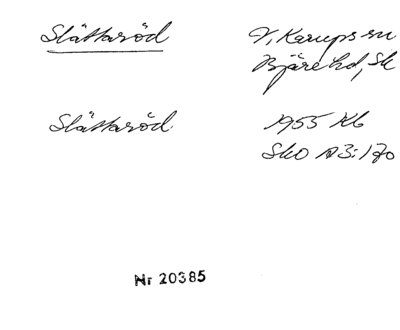 Slättaröd V. Karups sn
Bjäre hd, Sk
Slättaröd 1955 Kb
SkO A3:170
Nr 20385